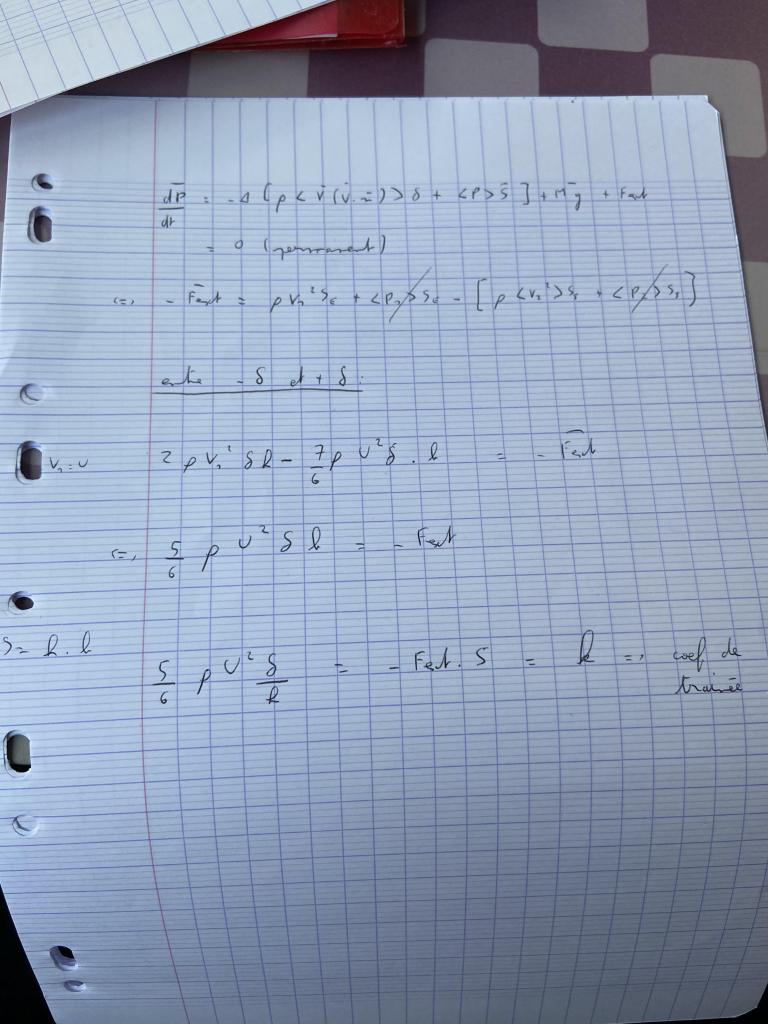 dP̄/dt = -Δ [ρ < v̄ (v̄.n̄) > S + <P> S̄ ] + Mḡ + Fext
= 0 (permanent)
<=> - F̄ext = ρ V₁² Se + <P₁> Se - [ ρ <V₂²> Ss + <P₂> Ss ]
entre -δ et +δ :
V₁ = U 2 ρ V₁² δ l - 7/6 ρ U² δ . l = - F̄ext
<=> 5/6 ρ U² δ l = - Fext
S = h . l
5/6 ρ U² δ/h = - Fext . S = k => coef de trainée